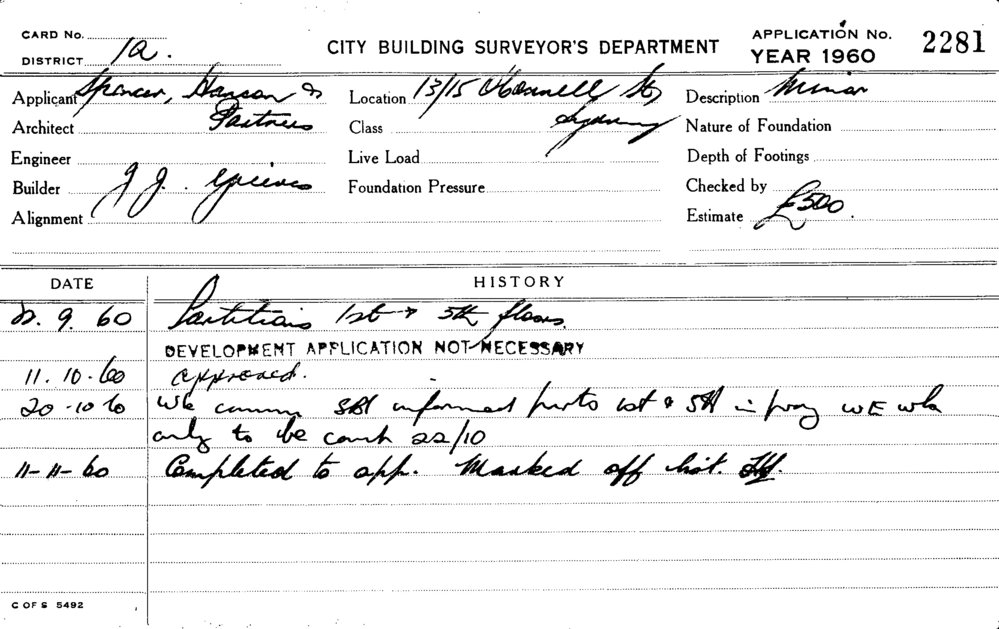 CARD No.
DISTRICT 1a.
CITY BUILDING SURVEYOR'S DEPARTMENT
APPLICATION No.
YEAR 1960
2281
Applicant Spencer, Hanson &
Partners
Architect
Engineer
Builder J. J. Grieves
Alignment
Location 13/15 O'Connell St,
Sydney
Class
Live Load
Foundation Pressure
Description Minor
Nature of Foundation
Depth of Footings
Checked by
Estimate £500.
DATE HISTORY
9. 60 Partitions 1st & 5th floors.
DEVELOPMENT APPLICATION NOT NECESSARY
11. 10. 60 approved.
20-10-60 informed 1st & 5th
only to be 22/10
11-11-60 Completed to app. Marked off list.
C OF S 5492